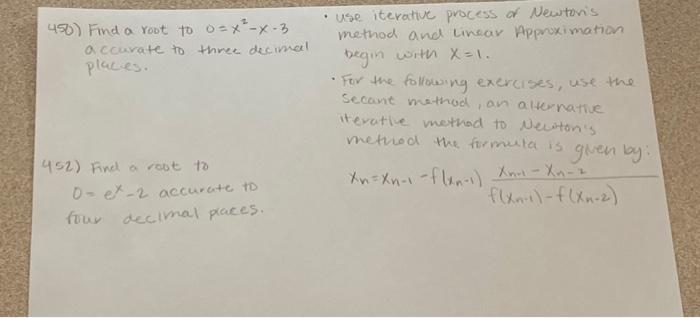 450) Find a root to 0 = x² - x - 3
accurate to three decimal
places.
452) Find a root to
0 = eˣ - 2 accurate to
four decimal places.
• use iterative process of Newton's
method and Linear Approximation
begin with X = 1.
• For the following exercises, use the
secant method, an alternative
iterative method to Newton's
method the formula is given by:
Xn = Xn-1 - f(Xn-1) (Xn-1 - Xn-2) / (f(Xn-1) - f(Xn-2))